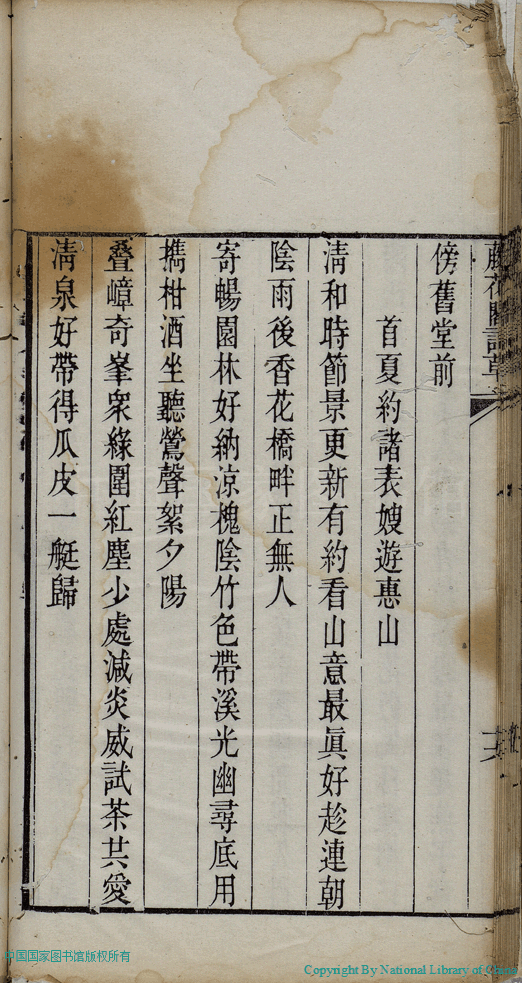 藤花閣詩草
傍舊堂前
首夏約諸表嫂遊惠山
清和時節景更新有約看山意最眞好趁連朝
陰雨後香花橋畔正無人
寄暢園林好納涼槐陰竹色帶溪光幽尋底用
攜柑酒坐聽鶯聲絮夕陽
叠嶂奇峯衆綠圍紅塵少處減炎威試茶共愛
清泉好帶得瓜皮一艇歸
中国国家图书馆版权所有
Copyright By National Library of China